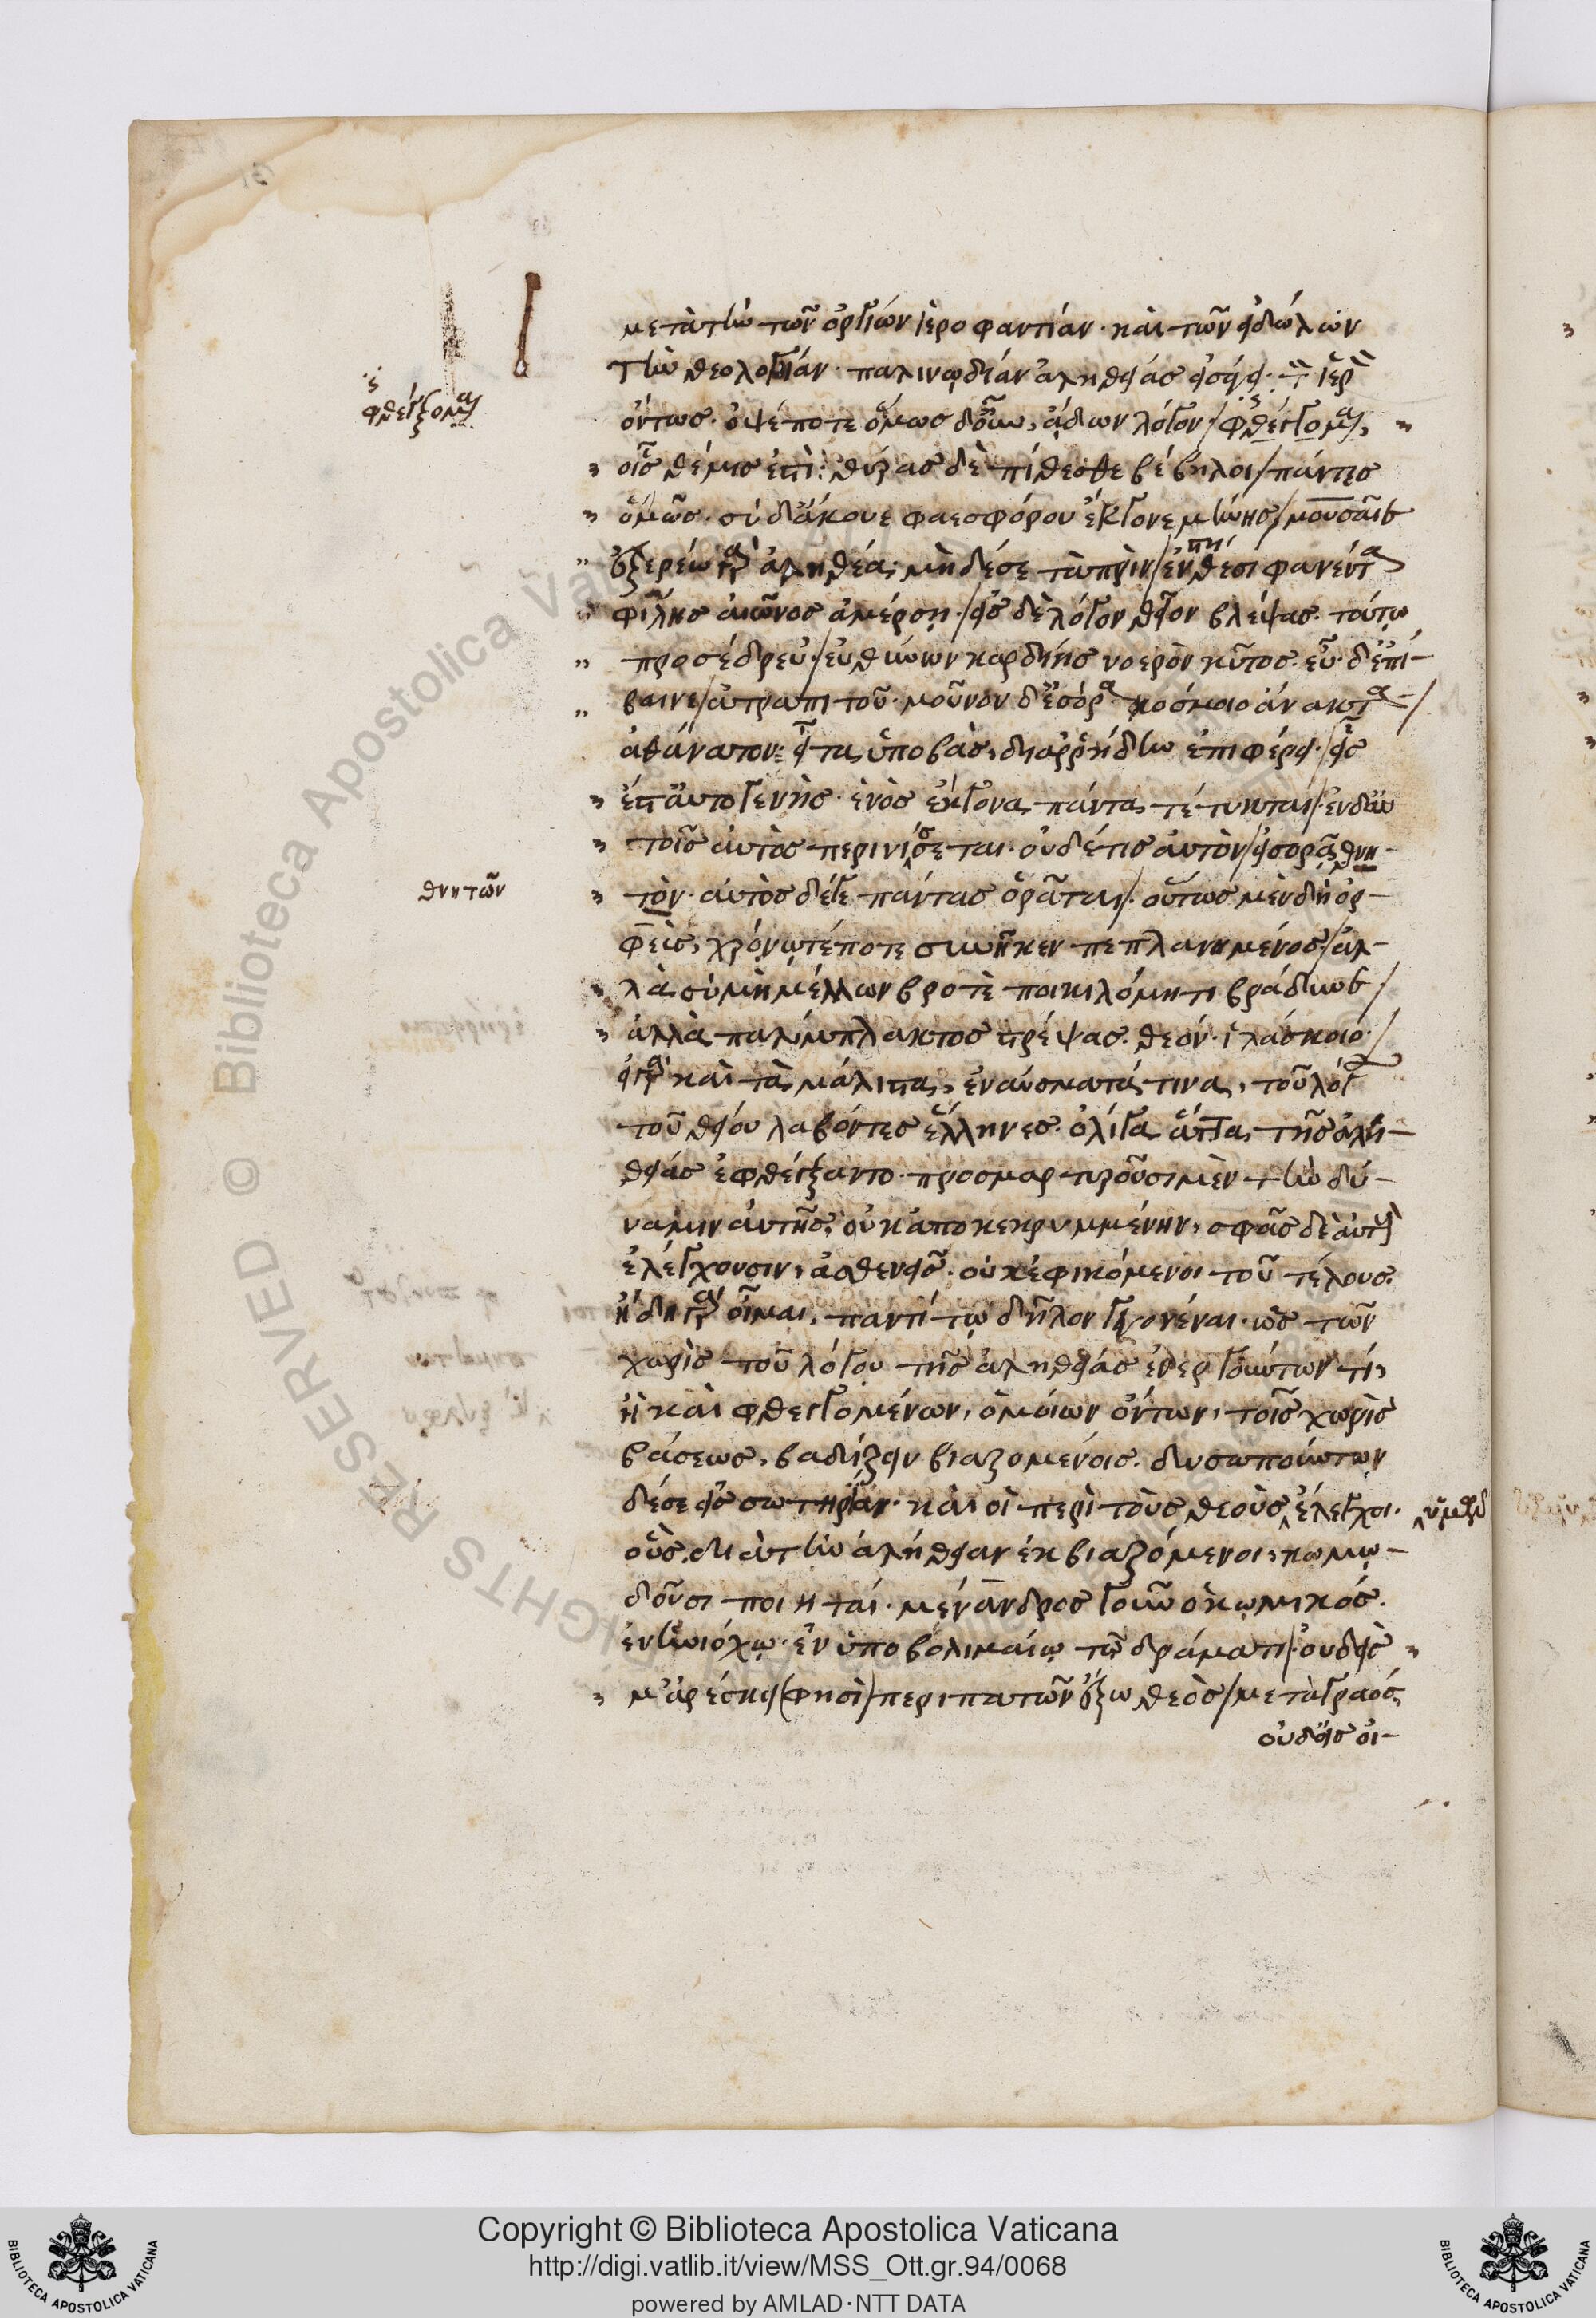 μετὰ τὴν τῶν ὀργίων ἱεροφαντίαν· καὶ τῶν εἰδώλων
τὴν θεολογίαν· παλινῳδίαν ἀληθείας εἰσάγει· τὸν ἱερὸν
ὄντως· ὀψέποτε ὅμως δ' οὖν, ᾄδων λόγον / φθέγγομαι,
φθέγξομαι
οἷς θέμις ἐστί: θύρας δ' ἐπίθεσθε βέβηλοι / πάντες
ὁμῶς· σὺ δ' ἄκουε φαεσφόρου ἔκγονε μήνης / μουσαῖε
ἐξερέω γὰρ ἀληθέα· μὴ δέ σε τὰ πρὶν / ἐν στήθεσι φανέντα
φίλης αἰῶνος ἀμέρσῃ· / εἰς δὲ λόγον θεῖον βλέψας· τούτῳ
προσέδρευε· / εὐθύνων καρδίης νοερὸν κῦτος· εὖ δ' ἐπί-
βαινε / ἀτραπιτοῦ· μοῦνον δ' ἐσόρα κόσμοιο ἄνακτα /
ἀθάνατον: εἶτα ὑποβὰς, διαρρήδην ἐπιφέρει· / εἷς
ἔστ' αὐτογενὴς· ἑνὸς ἔκγονα πάντα τέτυκται / ἐν δ' αὐ
τοῖς αὐτὸς περινίσσεται· οὐδέ τις αὐτὸν / εἰσοράᾳ θνη-
τὸν· αὐτὸς δέ γε πάντας ὁρᾶται /· οὕτως μὲν δὴ ὀρ-
θνητῶν
φεὺς, χρόνῳ τέ ποτε συνῆκεν πεπλανημένος / ἀλ-
λὰ σὺ μὴ μέλλων βροτὲ ποικιλόμητι βράδυνε /
ἀλλὰ παλίμπλαγκτος στρέψας· θεὸν ἱλάσκοιο· /
εἰ γὰρ καὶ τὰ μάλιστα, ἐναύσματά τινα, τοῦ λόγου
τοῦ θείου λαβόντες ἕλληνες· ὀλίγα ἄττα τῆς ἀλη-
θείας ἐφθέγξαντο· προσμαρτυροῦσι μὲν τὴν δύ-
ναμιν αὐτῆς, οὐκ ἀποκεκρυμμένην, σφᾶς δὲ αὐτοὺς
ἐλέγχουσιν, ἀσθενεῖς· οὐκ ἐφικόμενοι τοῦ τέλους·
ἤδη γὰρ οἶμαι, παντί τῳ δῆλον γεγονέναι· ὡς τῶν
χωρὶς τοῦ λόγου τῆς ἀληθείας ἐνεργούντων τί,
ἢ καὶ φθεγγομένων, ὁμοίων ὄντων, τοῖς χωρὶς
βάσεως, βαδίζειν βιαζομένοις. δυσωπούντων
δέ σε εἰς σωτηρίαν· καὶ οἱ περὶ τοὺς θεοὺς ἔλεγχοι·
οὓς, διὰ τὴν ἀλήθειαν ἐκβιαζόμενοι, κωμῳ-
δοῦσι ποιηταί· μένανδρος γοῦν ὁ κωμικός.
ἐν ἡνιόχῳ· ἐν ὑποβολιμαίῳ τῷ δράματι /· οὐδεὶς
μ' ἀρέσκει (φησὶ) περιπατῶν ἔξω θεὸς / μετὰ γραός,
οὐδ' εἰς οἰ-
Copyright © Biblioteca Apostolica Vaticana
http://digi.vatlib.it/view/MSS_Ott.gr.94/0068
powered by AMLAD·NTT DATA